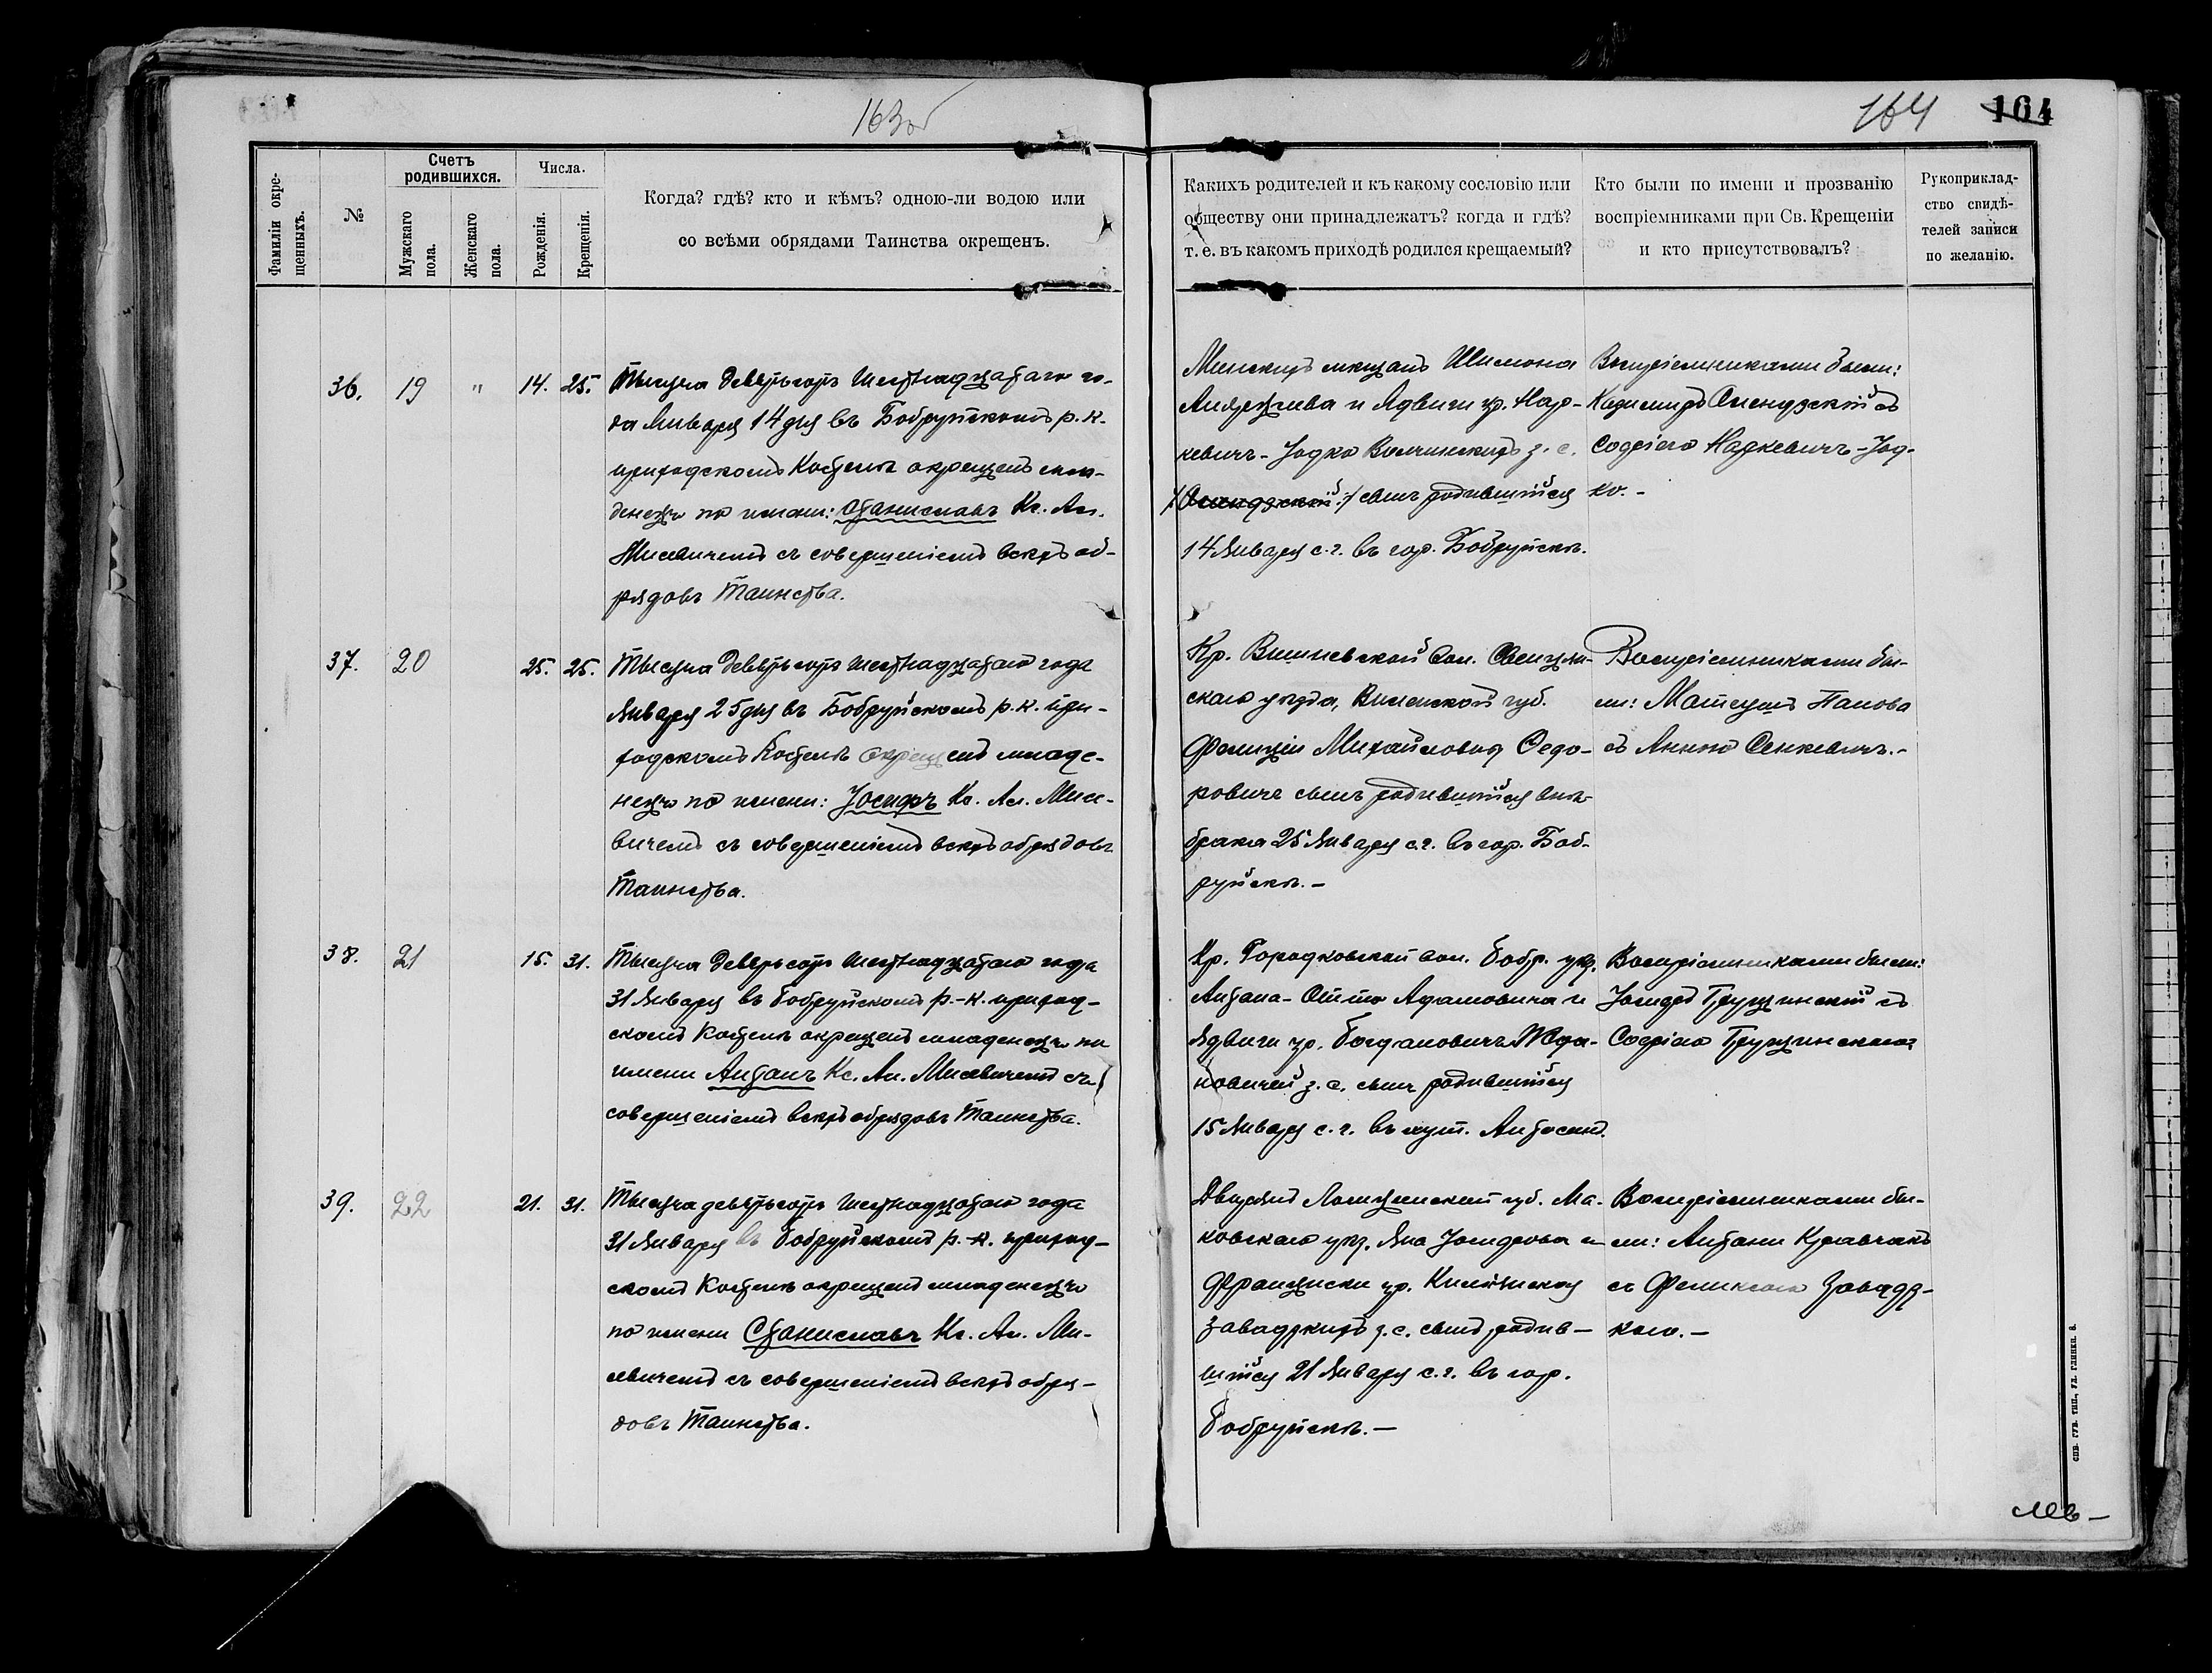 163об
164 164
Фамиліи окрещенныхъ.
№
Счетъ родившихся.
Мужскаго пола.
Женскаго пола.
Числа.
Рожденія.
Крещенія.
Когда? гдѣ? кто и кѣмъ? одною-ли водою или
со всѣми обрядами Таинства окрещенъ.
Какихъ родителей и къ какому сословію или
обществу они принадлежатъ? когда и гдѣ?
т. е. въ какомъ приходѣ родился крещаемый?
Кто были по имени и прозванію
воспріемниками при Св. Крещеніи
и кто присутствовалъ?
Рукоприклад-
ство свидѣ-
телей записи
по желанію.
36. 19 " 14. 25. Тысяча девятьсотъ шестнадцатаго го-
да Января 14 дня въ Бобруйскомъ р. к.
приходскомъ Костелѣ окрещенъ мла-
денецъ по имени: Станиславъ Кс. Ал.
Мисевичемъ съ совершеніемъ всѣхъ об-
рядовъ Таинства.
Минскихъ мѣщанъ Шимона
и Ядвиги ур. Нар-
кевичъ-Іодко з. с.
сынъ родившійся
14 Января с. г. въ гор. Бобруйскѣ.
Воспріемниками были:
Казимиръ съ
Софіею Наркевичъ-Іод-
ко. -
37. 20 25. 25. Тысяча девятьсотъ шестнадцатаго года
Января 25 дня въ Бобруйскомъ р. к. при-
ходскомъ Костелѣ окрещенъ младе-
нецъ по имени: Іосифъ Кс. Ал. Мисе-
вичемъ съ совершеніемъ всѣхъ обрядовъ
Таинства.
Кр. Вишневской вол. Свенцян-
скаго уѣзда, Виленской губ.
Фелиціи Михайловны Федо-
ровичъ сынъ родившійся внѣ
брака 25 Января с. г. въ гор. Боб-
руйскѣ. -
Воспріемниками бы-
ли: Матеушъ Панова
съ Анною Сенкевичъ. -
38. 21 15. 31. Тысяча девятьсотъ шестнадцатаго года
31 Января въ Бобруйскомъ р.-к. приход-
скомъ Костелѣ окрещенъ младенецъ по
имени Антонъ Кс. Ал. Мисевичемъ съ
совершеніемъ всѣхъ обрядовъ Таинства.
Кр. Городковской вол. Бобр. уѣз.
Антона- Адамовича и
Ядвиги ур. Богдановичъ Жда-
новичей з. с. сынъ родившійся
15 Января с. г. въ
Воспріемниками были:
Іосифъ Грущинскій съ
Софіею Грущинскою
39. 22 21. 31. Тысяча девятьсотъ шестнадцатаго года
31 Января въ Бобруйскомъ р.-к. приход-
скомъ Костелѣ окрещенъ младенецъ
по имени Станиславъ Кс. Ал. Ми-
севичемъ съ совершеніемъ всѣхъ обря-
довъ Таинства.
Дворянъ Ломжинской губ. Ма-
ковскаго уѣз. Яна Іосифова и
Франциски ур.
Завадзкихъ з. с. сынъ, родив-
шійся 21 Января с. г. въ гор.
Бобруйскѣ. -
Воспріемниками бы-
ли: Антони Кравчакъ
съ Феликсою Завадз-
кою. -
СПБ. ГУБ. ТИП., УЛ. ГЛИНКИ. 8.